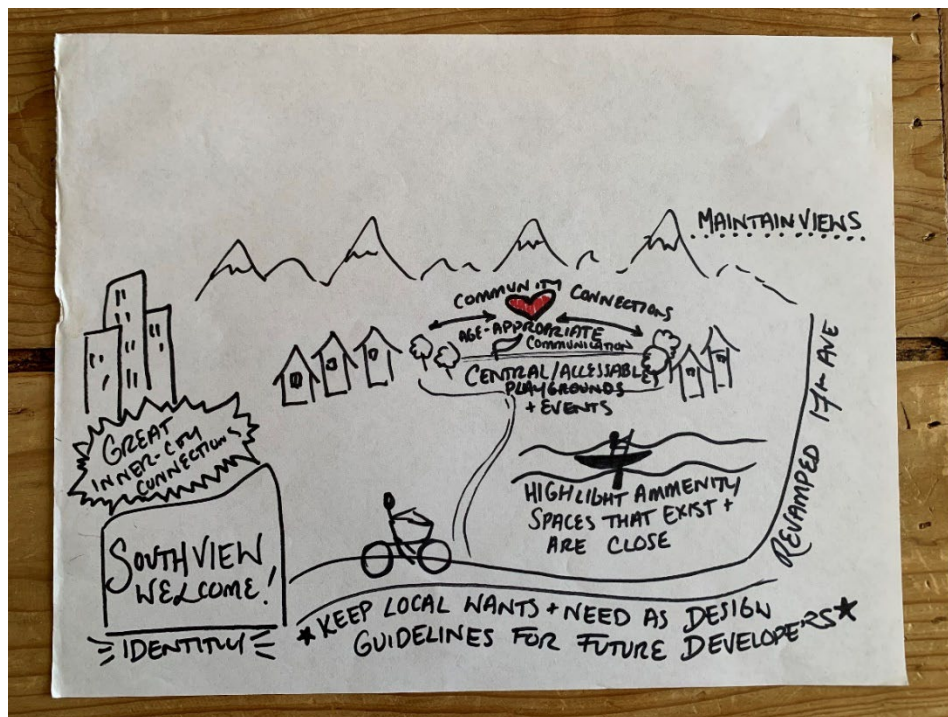 MAINTAIN VIEWS
COMMUNITY CONNECTIONS
AGE-APPROPRIATE
COMMUNICATION
CENTRAL/ACCESSABLE
PLAYGROUNDS
+ EVENTS
REVAMPED 17th AVE
GREAT
INNER-CITY
CONNECTIONS
HIGHLIGHT AMMENITY
SPACES THAT EXIST +
ARE CLOSE
SOUTHVIEW
WELCOME!
IDENTITIY
*KEEP LOCAL WANTS + NEED AS DESIGN
GUIDELINES FOR FUTURE DEVELOPERS*